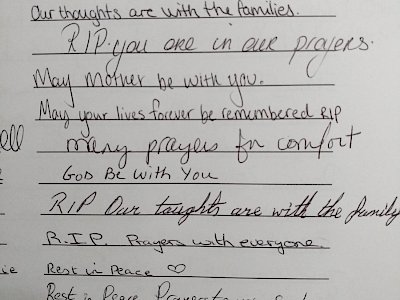 Our thoughts are with the families.
RIP. you are in our prayers.
May Mother be with you.
May your lives forever be remembered RIP
ell many prayers for comfort
God Be With You
RIP Our toughts are with the family
R.I.P. Prayers with everyone.
ie Rest in Peace ♡
Rest in Peace